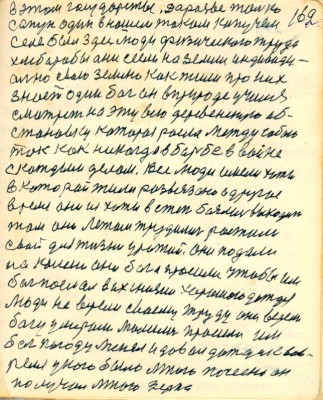 162
в этом государстве, заразве только
сапун один в нашем таком кипучем
селе были здеся люди физического труда
хлеборобы они сели на земли индивиди-
ално свою землю как жили про них
знает один бог он в природе учился
смотрет на эту всю деревенскую об-
становку которая росла между собою
так как никогда в борбе в войне
с каждым делом. Все люди имели хаты
в которой жили развязано а другое
время они из хаты в степ
там они летом трудилис растили
свой для жизни урожай. они подали
на колени они бога просили чтобы им
бог послал в их знании хорошого дождя
люди не верели своему труду они верели
богу умирали молилис просили им
бог погоду менял и давал дождик вов-
ремя у кого было много посеено он
получал много зерна